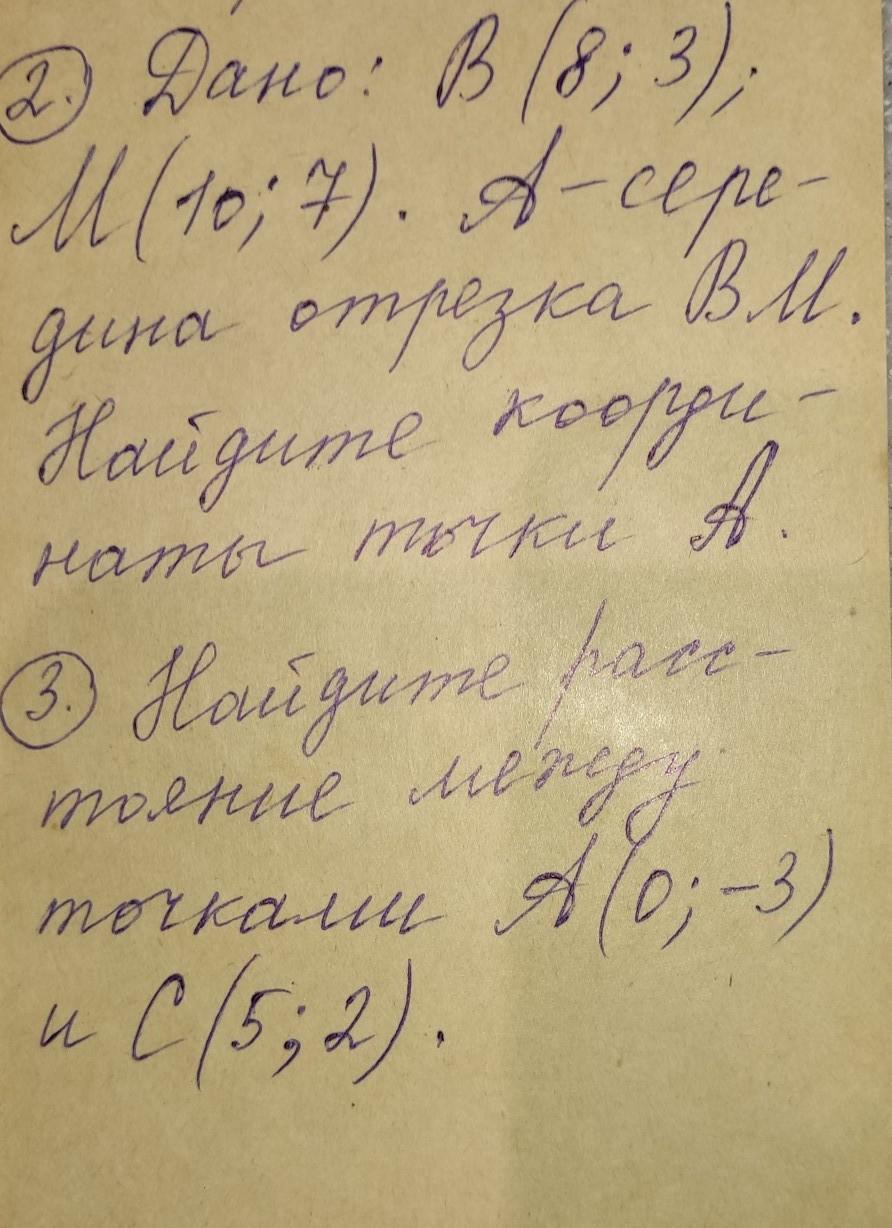 2. Дано: В (8; 3);
М (10; 7). А - сере-
дина отрезка ВМ.
Найдите коорди-
наты точки А.
3. Найдите расс-
тояние между
точками А (0; -3)
и С (5; 2).